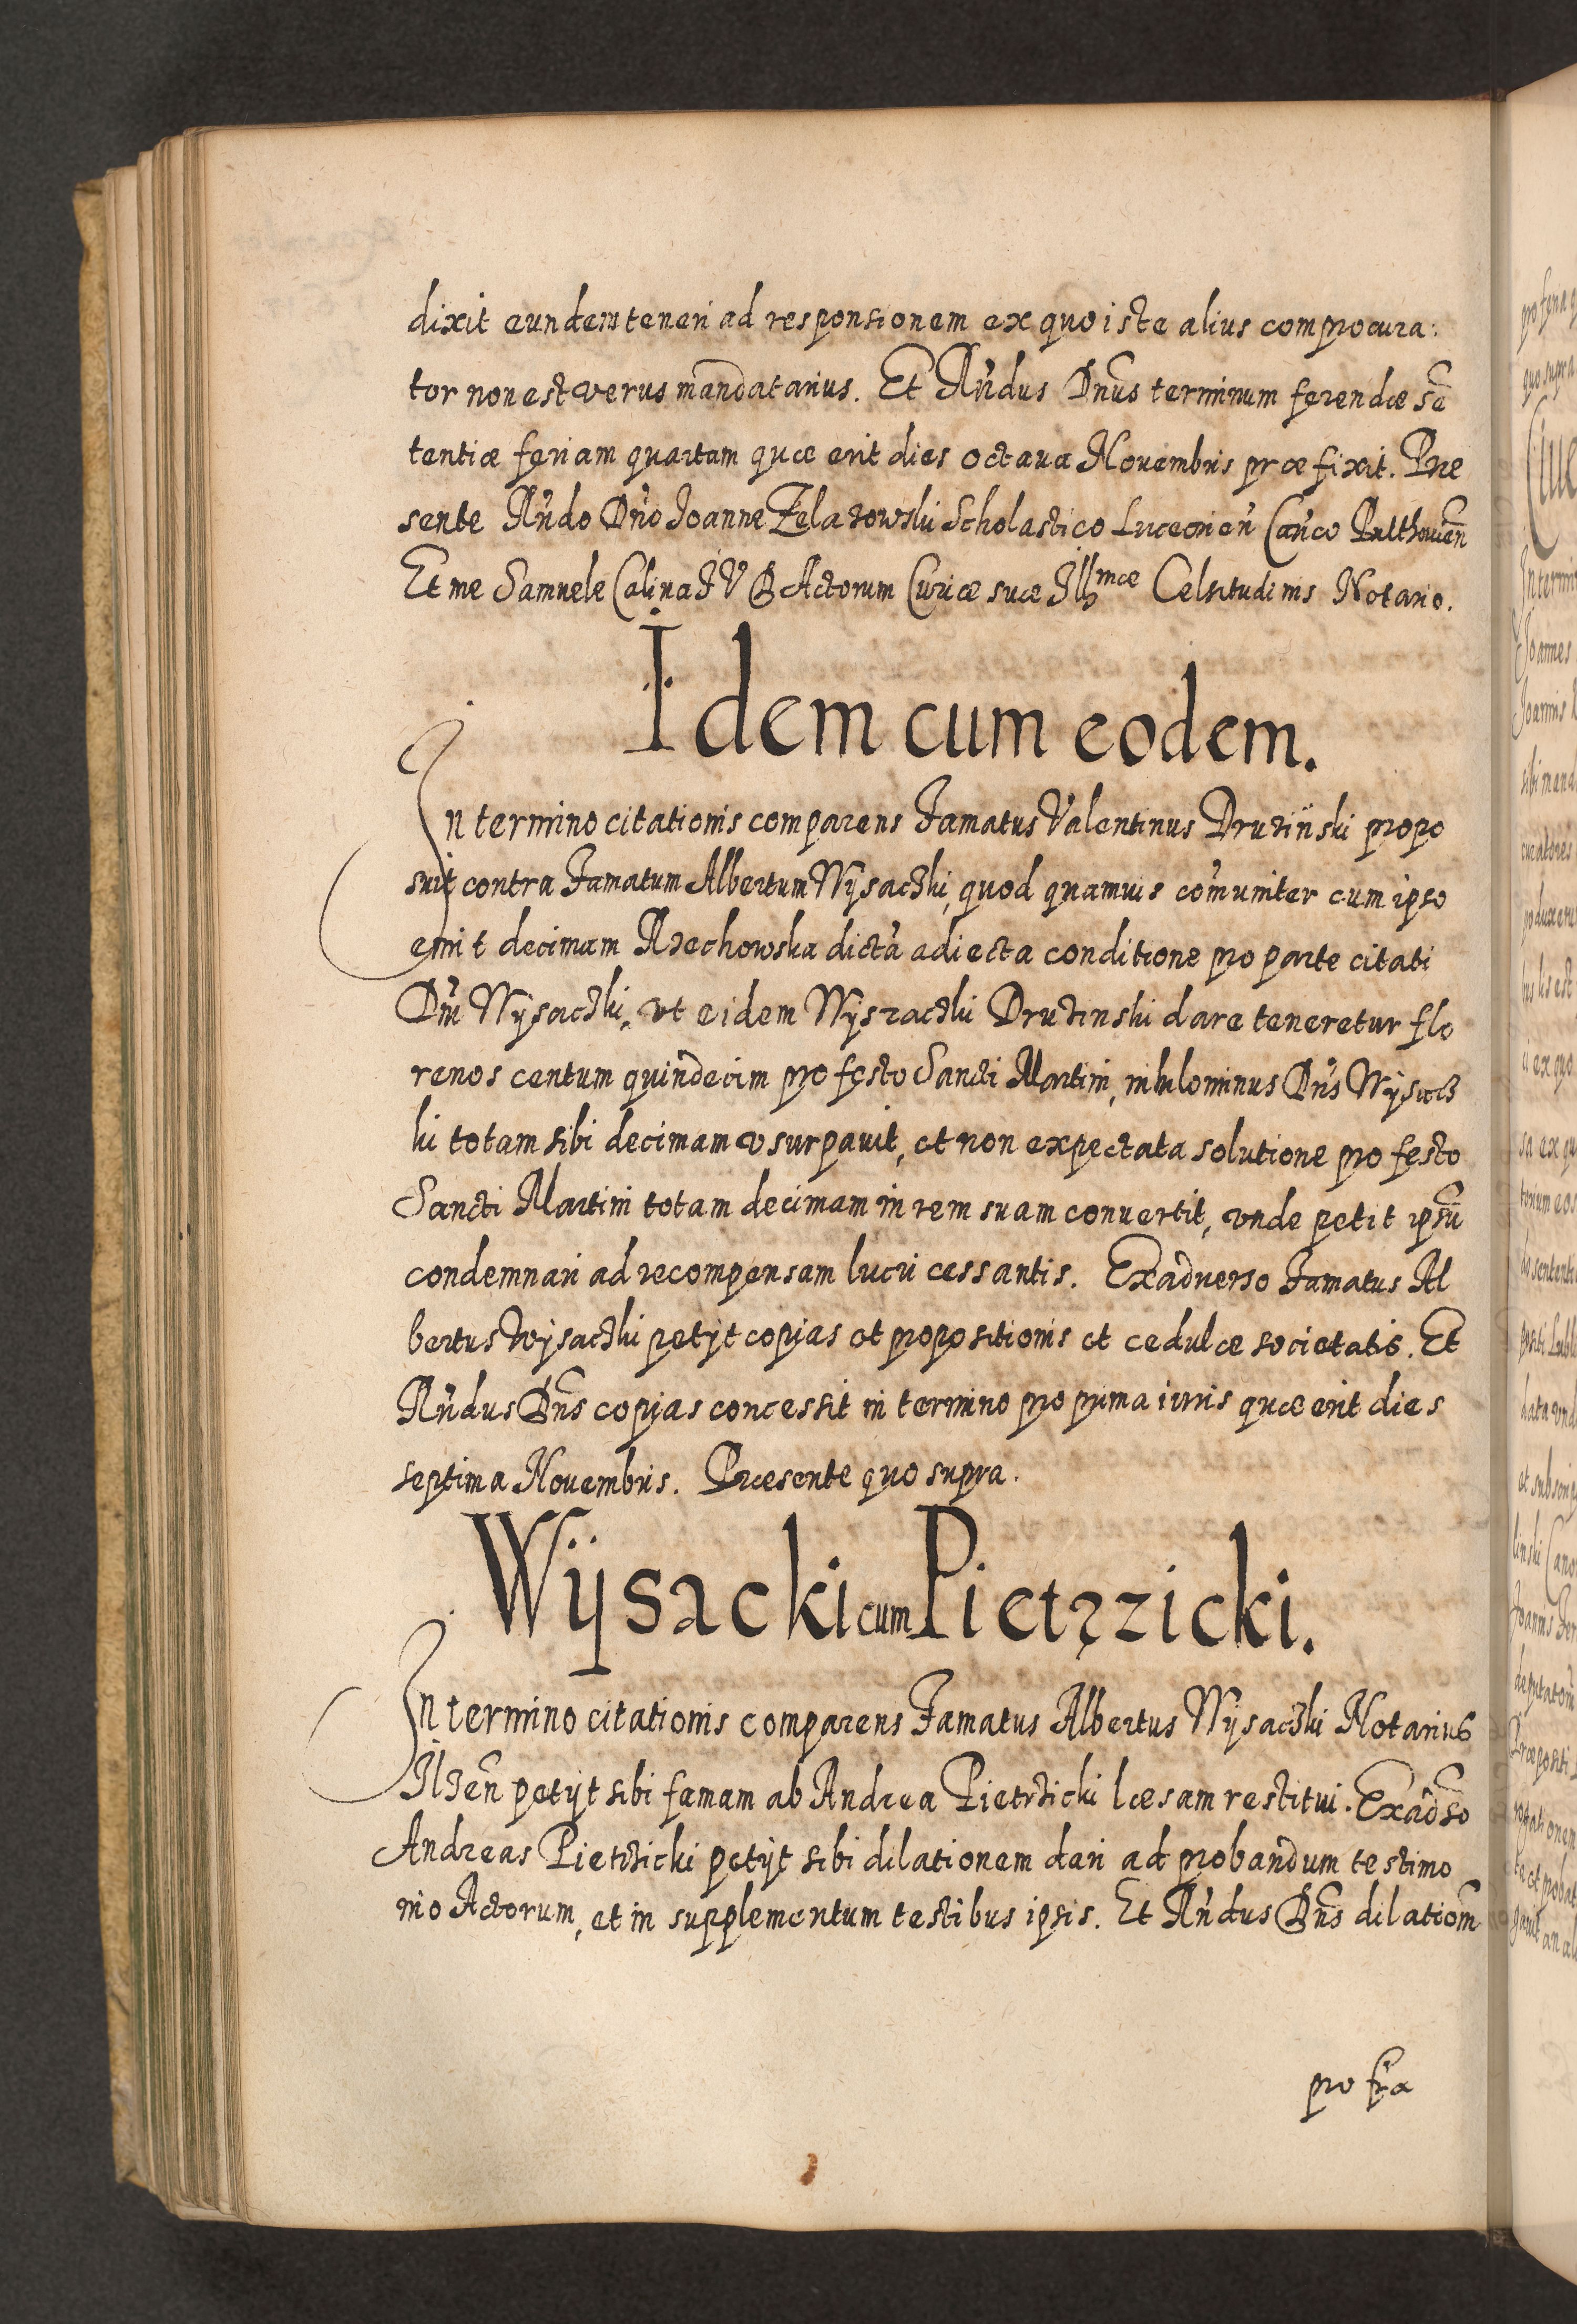 dixit eundem teneri ad responsionem ex quo iste alius comprocura:
tor non est verus mandatarius. Et Rńdus Dnus terminum ferendæ sē
tentiæ feriam quartam quæ erit dies octaua Nouembris præfixit. Præ
sente Rńdo Dńo Joanne Zelazowski Scholastico Luceorień Cańco Pulthouień
Et me Samuele Calina I V D Actorum Curiæ suæ Illmæ Celsitudinis Notario.
Idem cum eodem.
In termino citationis comparens Famatus Valentinus Druzinski propo
suit contra Famatum Albertum Wysaczki, quod quamuis cōmuniter cum ipso
emit decimam Rzechowska dictā adiecta conditione pro parte citati
Dńi Wysaczki, vt eidem Wyszaczki Druzinski dare teneretur flo
renos centum quindecim pro festo Sancti Martini, nihilominus Dńs Wysacz
ki totam sibi decimam vsurpauit, et non expectata solutione pro festo
Sancti Martini totam decimam in rem suam conuertit, vnde petit ipsū
condemnari ad recompensam lucri cessantis. Exaduerso Famatus Al
bertus Wysaczki petijt copias et propositionis et cedulæ societatis. Et
Rńdus Dns copias concessit in termino pro prima iuris quæ erit dies
septima Nouembris. Præsente quo supra.
Wysacki cum Pietrzicki.
In termino citationis comparens Famatus Albertus Wysaczki Notarius
Ilzeń petijt sibi famam ab Andrea Pietrzicki læsam restitui. Exadṡo
Andreas Pietrzicki petijt sibi dilationem dari ad probandum testimo
nio Actorum, et in supplementum testibus ipsis. Et Rńdus Dns dilationē
pro fŕa